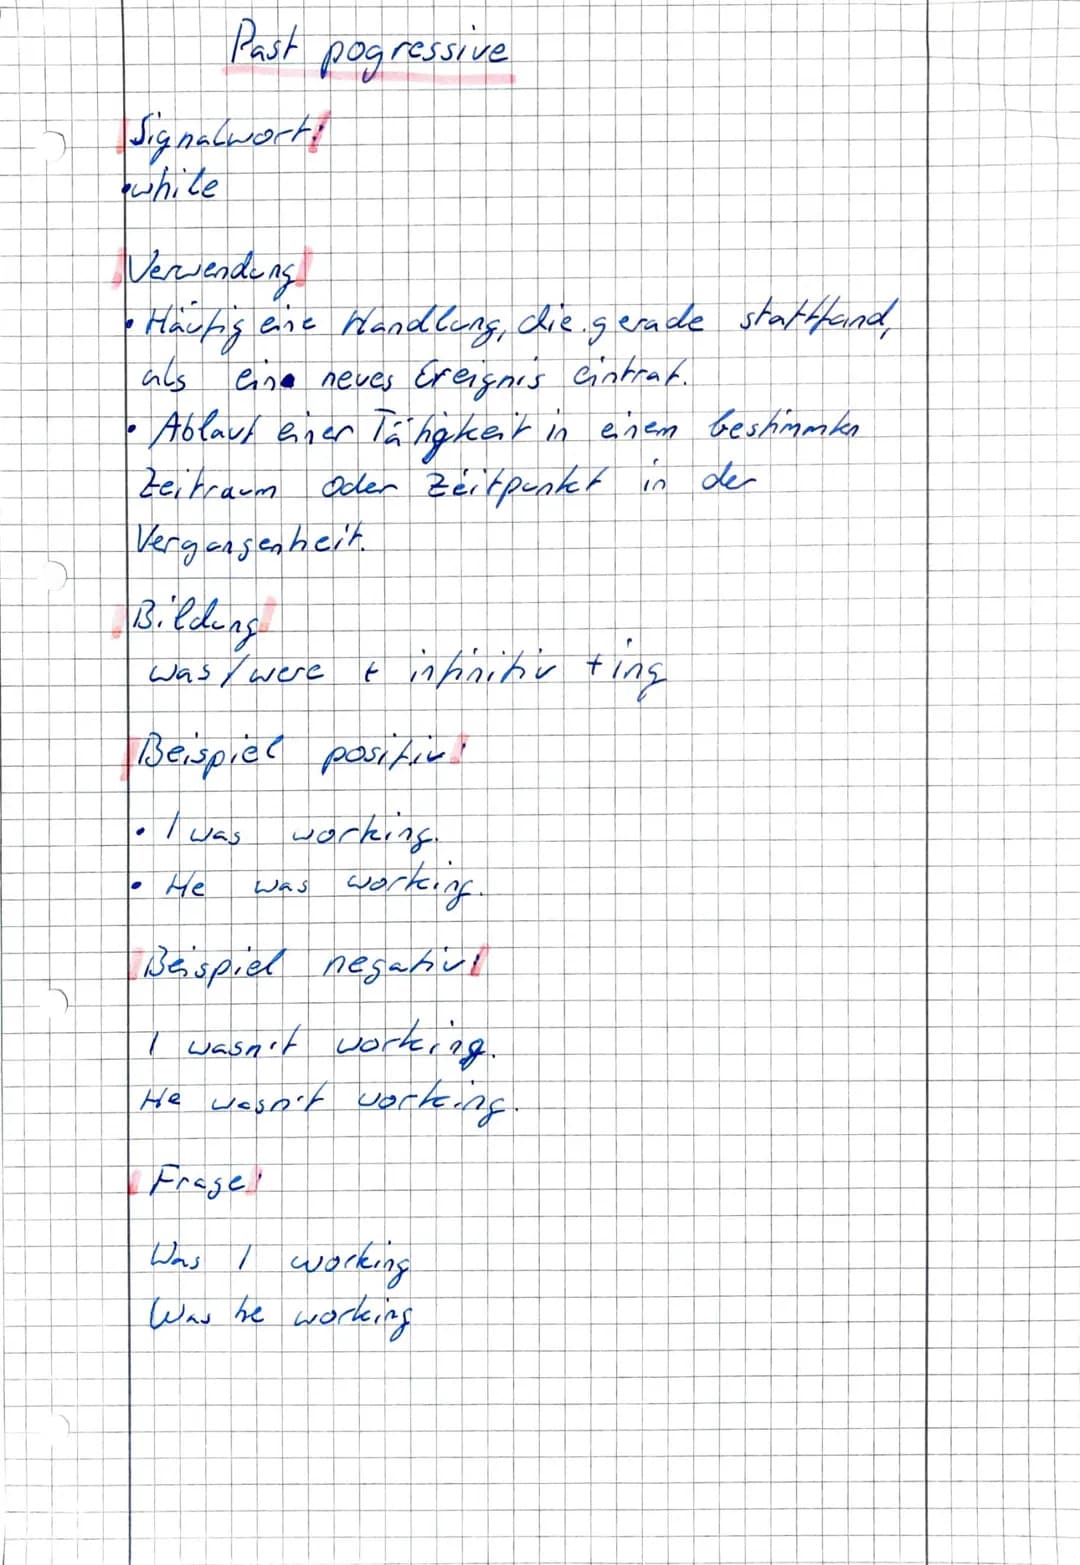 Past pogressive
Signalwort:
•while
Verwendung
• Häufig eine Handlung, die gerade stattfand,
als ein neues Ereignis eintrat.
• Ablauf einer Tätigkeit in einem bestimmten
Zeitraum oder Zeitpunkt in der
Vergangenheit.
Bildung
was/were + infinitiv +ing
Beispiel positiv:
• I was working.
• He was working.
Beispiel negativ
I wasn't working.
He wasn't working.
Frage:
Was I working
Was he working